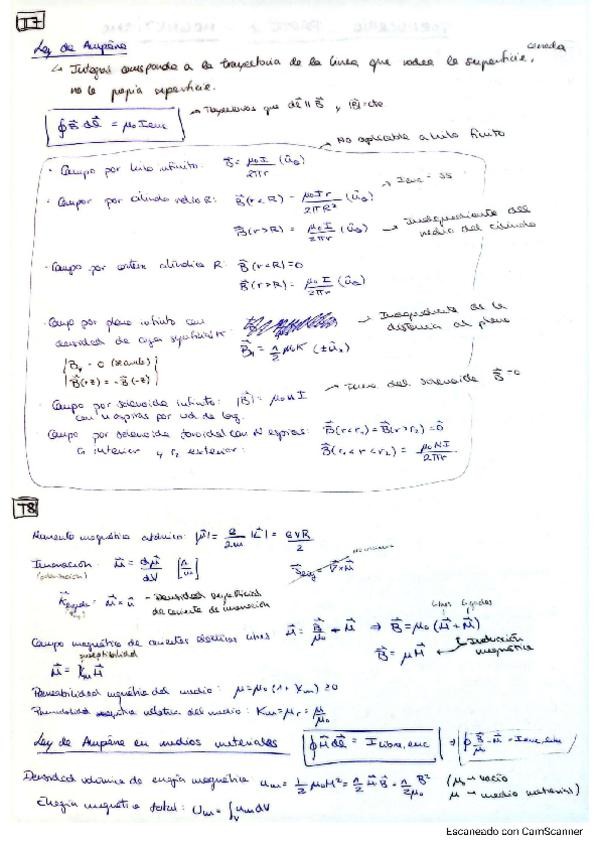 T7
Ley de Ampère
↳ Integral corresponde a la trayectoria de la línea que rodea la superficie, cerrada
no la propia superficie.
∮B⃗ dl⃗ = μ₀ Ienc → Trayectorias que dl⃗ || B⃗ y |B⃗| = cte
→ No aplicable a hilo finito
· Campo por hilo infinito: B⃗ = μ₀I/2πr (û_θ)
· Campo por cilindro radio R: B⃗(r<R) = μ₀Ir/2πR² (û_θ) → Ienc =
B⃗(r>R) = μ₀I/2πr (û_θ) → Independiente del
radio del cilindro
· Campo por corteza cilíndrica R: B⃗(r<R) = 0
B⃗(r>R) = μ₀I/2πr (û_θ)
· Campo por plano infinito con → Independiente de la
densidad de carga superficial K: distancia al plano
B⃗ = 1/2 μ₀K (±û)
B⃗(+z) = -B⃗(-z)
· Campo por solenoide infinito: |B⃗| = μ₀nI → Fuera del solenoide B⃗=0
con n espiras por ud de long.
· Campo por solenoide toroidal con N espiras: B⃗(r<r₁) = B⃗(r>r₂) = 0⃗
r₁ interior y r₂ exterior: B⃗(r₁<r<r₂) = μ₀NI/2πr
T8
Momento magnético atómico: |μ⃗| = e/2m |L⃗| = evR/2
Imanación: M⃗ = dμ⃗/dV [A/m] J⃗ = ∇⃗×M⃗
K⃗ = M⃗×n⃗ → Densidad superficial
de corriente de imanación
libres ligadas
Campo magnético de corrientes eléctricas libres H⃗ = B⃗/μ₀ - M⃗ ⇒ B⃗ = μ₀(H⃗+M⃗)
susceptibilidad
M⃗ = χm H⃗ B⃗ = μH⃗ ← Inducción
magnética
Permeabilidad magnética del medio: μ = μ₀(1+χm) ≥ 0
Permeabilidad magnética relativa del medio: Km = μr = μ/μ₀
Ley de Ampère en medios materiales ∮H⃗ dl⃗ = I libre, enc
Densidad volúmica de energía magnética um = 1/2 μ₀H² = 1/2 H⃗ B⃗ = 1/2 B²/μ₀ (μ₀ → vacío
μ → medio material)
Energía magnética total: Um = ∫v um dV
Escaneado con CamScanner